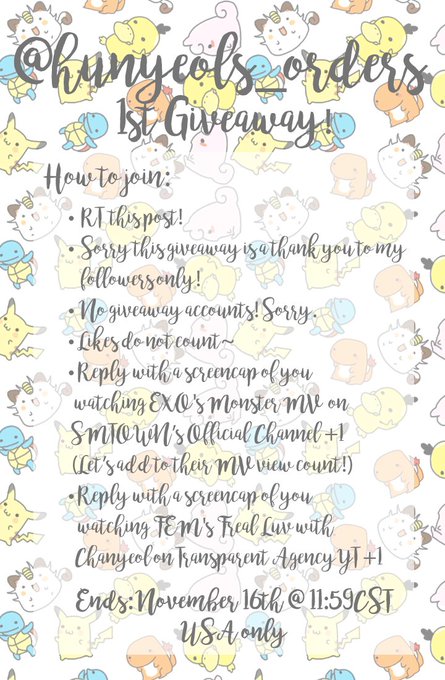 @hunyeols_orders
1st Giveaway!
How to join:
• RT this post!
• Sorry this giveaway is a thank you to my
followers only!
• No giveaway accounts! Sorry.
• Likes do not count~
• Reply with a screencap of you
watching EXO's Monster MV on
SMTOWN's Official Channel +1
(Let's add to their MV view count!)
• Reply with a screencap of you
watching FEM's Freal Luv with
Chanyeol on Transparent Agency YT +1
Ends: November 16th @ 11:59CST
USA only